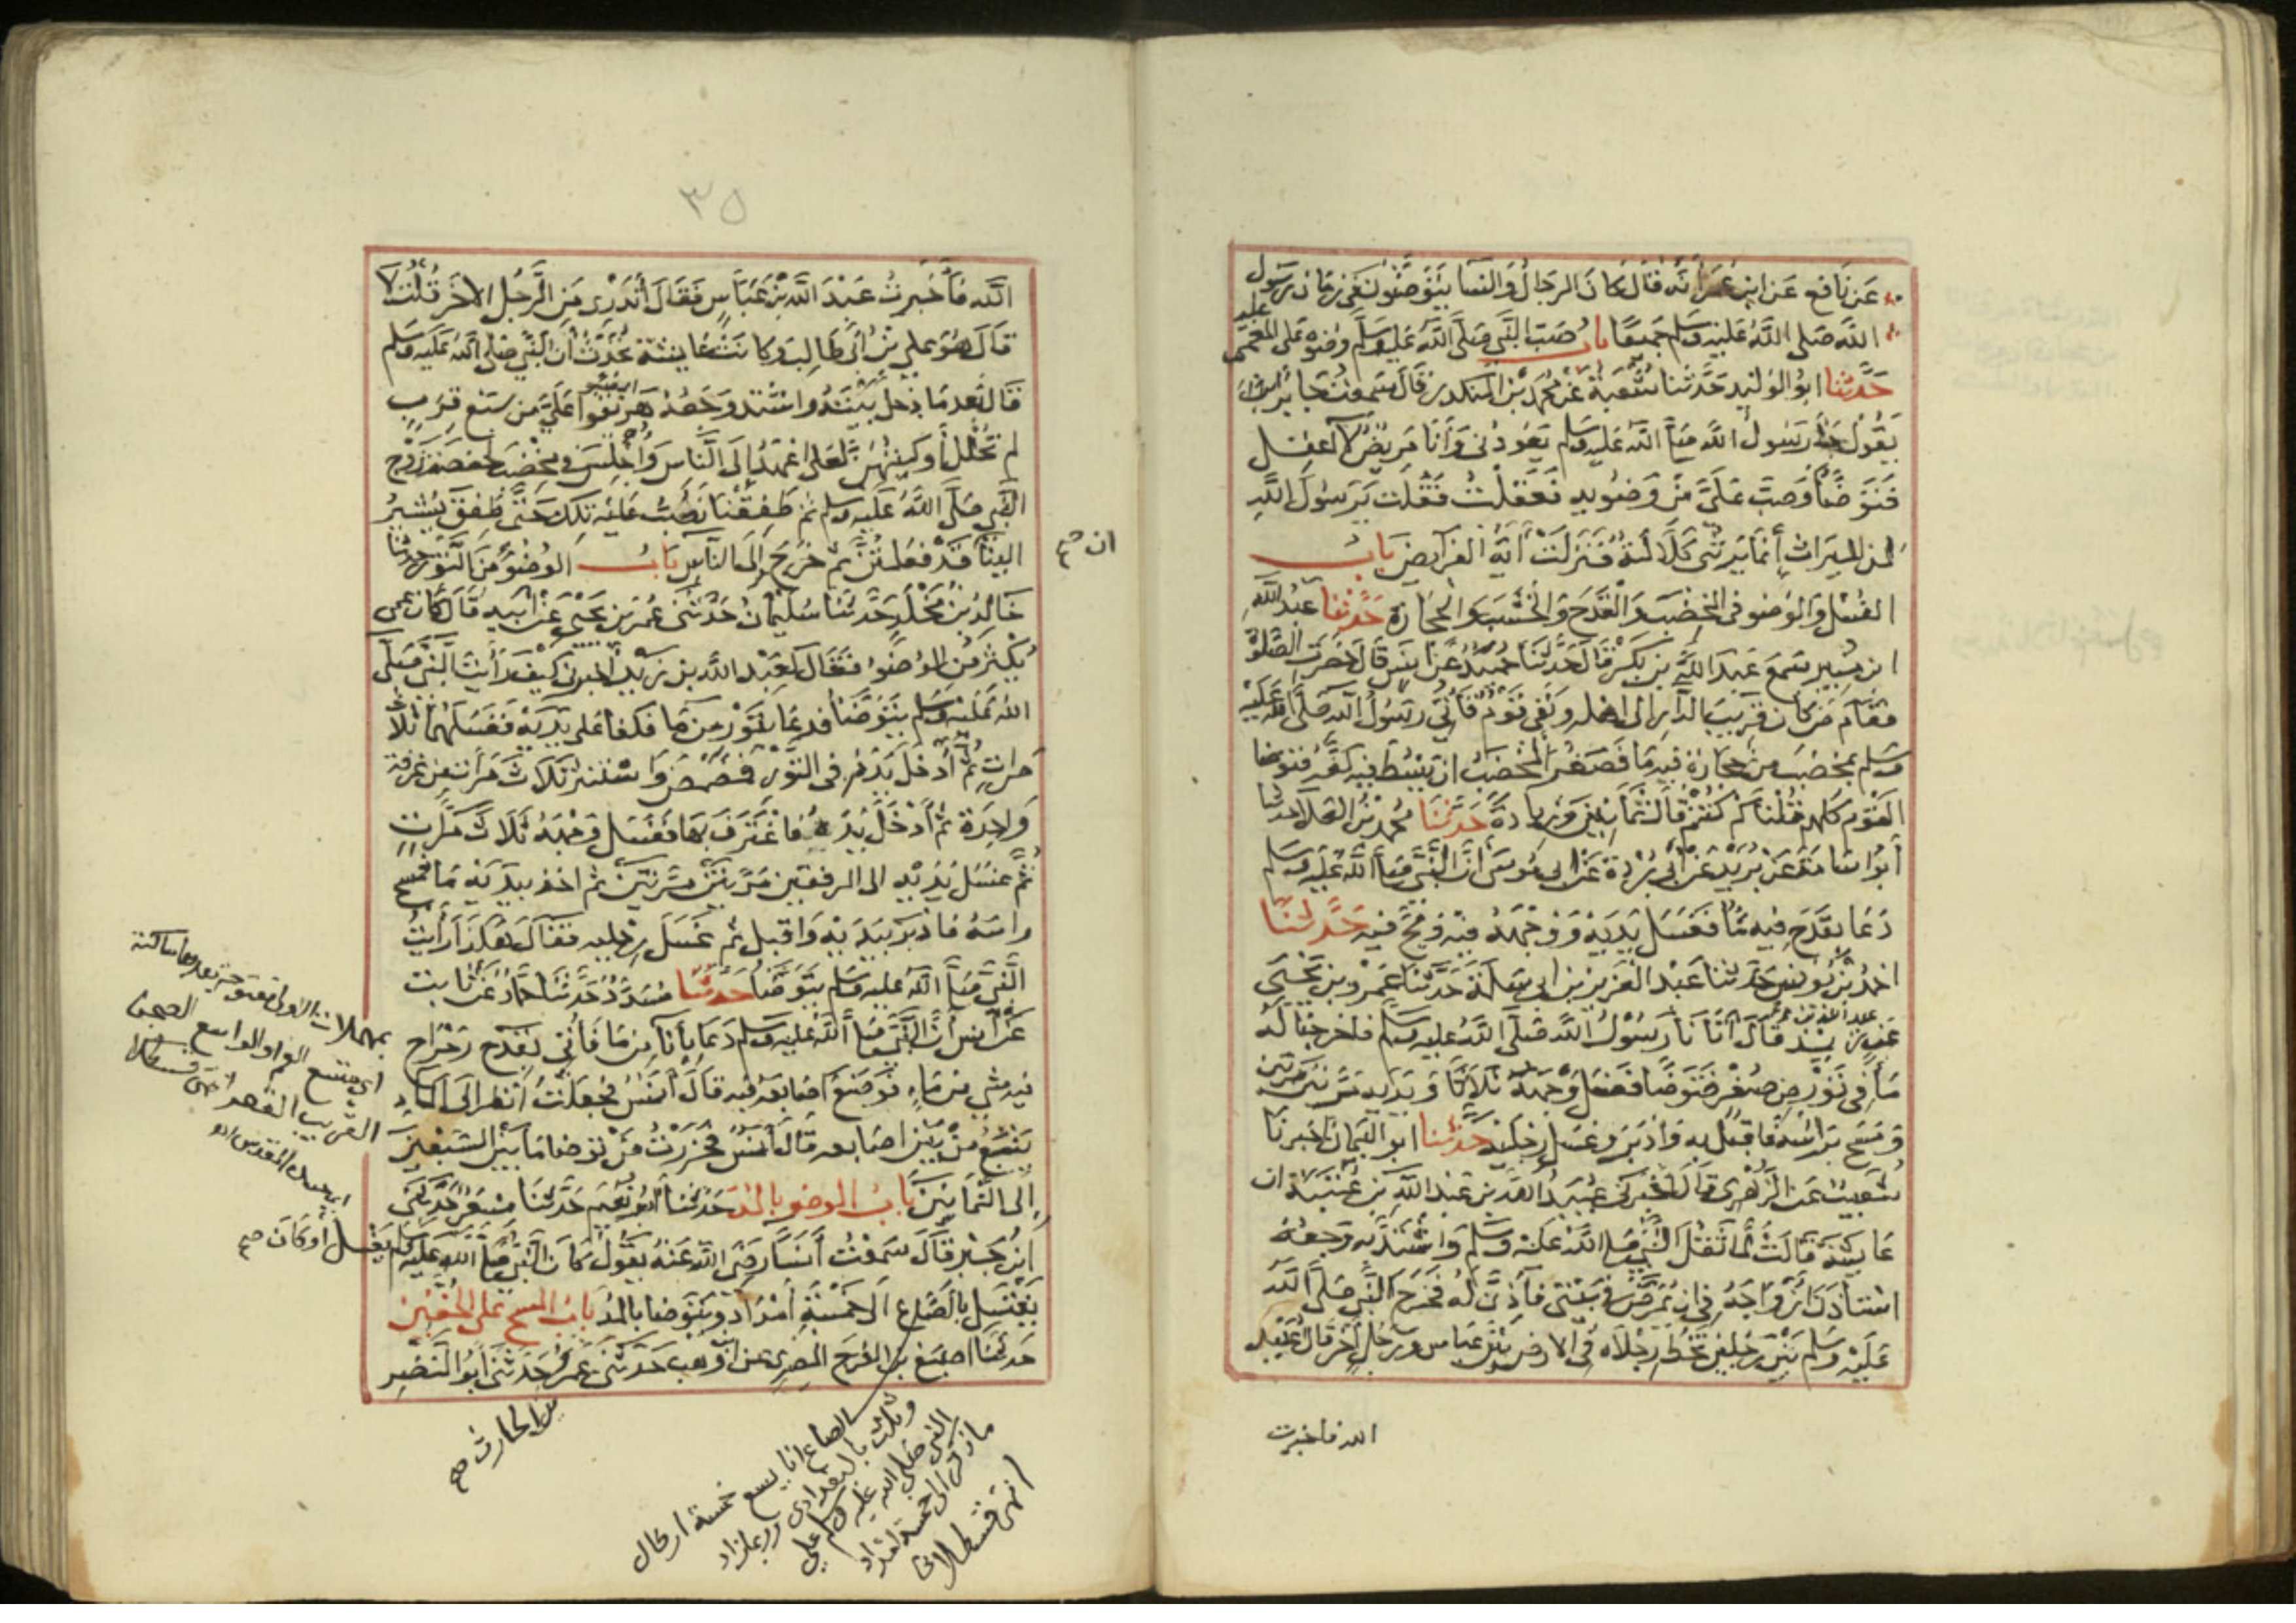 عن نافع عن ابن عمر أنه قال كان الرجال والنسا يتوضئون في زمان رسول
الله صلى الله عليه وسلم جميعا باب صب النبي صلى الله عليه وسلم وضوه على المغمى
عليه
حدثنا ابو الوليد حدثنا شعبة عن محمد بن المنكدر قال سمعت جابرا
يقول جا رسول الله صلى الله عليه وسلم يعودني وأنا مريض لا اعقل
فتوضأ وصب علي من وضويه فعقلت فقلت يرسول الله
لمن الميراث إنما يرثني كلالة فنزلت آية الفرايض باب
الغسل والوضو في المخضب والقدح والخشب والحجارة حدثنا عبد الله
ابن منير سمع عبد الله بن بكر قال حدثنا حميد عن انس قال حضرت الصلوة
فقام من كان قريب الدار الى اهله وبقي قوم فأتي رسول الله صلى الله عليه
وسلم بمخضب من حجارة فيه ما فصغر المخضب ان يبسط فيه كفه فتوضا
القوم كلهم فقلنا كم كنتم قال ثمانين وزيادة حدثنا محمد بن العلا حدثنا
أبو اسامة عن بريد عن أبي بردة عن ابي موسى أن النبي صلى الله عليه وسلم
دعا بقدح فيه ما فغسل يديه ووجهه فيه ومج فيه حدثنا
احمد بن يونس حدثنا عبد العزيز بن ابي سلمة حدثنا عمرو بن يحيى
عن عبد الله بن زيد قال أتانا رسول الله صلى الله عليه وسلم فاخرجنا له
ما في تور من صفر فتوضا فغسل وجهه ثلاثا ويديه مرتين مرتين
ومسح براسه فاقبل به وادبر وغسل رجليه حدثنا ابو اليمان اخبرنا
شعيب عن الزهري قال اخبرني عبيد الله بن عبد الله بن عتبة ان
عايشة قالت لما ثقل النبي صلى الله عليه وسلم واشتد به وجعه
استأذن ازواجه في ان يمرض في بيتي فأذن له فخرج النبي صلى الله
عليه وسلم بين رجلين تخط رجلاه في الارض بين عباس ورجل آخر قال عبيد
الله فاخبرت
٣٥
الله فأخبرت عبد الله بن عباس فقال أتدري من الرجل الاخر قلت لا
قال هو علي بن أبي طالب وكانت عايشة تحدث أن النبي صلى الله عليه وسلم
قال بعد ما دخل بيته واشتد وجعه هريقوا علي من سبع قرب
لم تحلل أوكيتهن لعلي اعهد إلى الناس وأجلس في مخضب لحفصة زوج
النبي صلى الله عليه وسلم ثم طفقنا نصب عليه تلك حتى طفق يشير
الينا أن قد فعلتن ثم خرج إلى الناس باب الوضو من التور حدثنا
ان صح
خالد بن مخلد حدثنا سليمان حدثني عمرو بن يحيى عن ابيه قال كان عمي
يكثر من الوضوا فقال لعبد الله بن زيد اخبرني كيف رأيت النبي صلى
الله عليه وسلم يتوضأ فدعا بتور من ما فكفا على يديه فغسلهما ثلاث
مرات ثم أدخل يده في التور فمضمض واستنثر ثلاث مرات من غرفة
واحدة ثم أدخل يده فاغترف بها فغسل وجهه ثلاث مرات
ثم غسل يديه الى المرفقين مرتين مرتين ثم اخذ بيديه ما فمسح
راسه فادبر بيديه واقبل ثم غسل رجليه فقال هكذا رأيت
النبي صلى الله عليه وسلم يتوضا حدثنا مسدد حدثنا حماد عن ثابت
عن أنس أن النبي صلى الله عليه وسلم دعا بأناء من ما فأتي بقدح رحراح
فيه شي من ماء فوضع اصابعه فيه قال أنس فجعلت أنظر الى الماء
ينبع من بين اصابعه قال أنس فحزرت من توضا ما بين السبعين
إلى الثمانين باب الوضو بالمد حدثنا أبو نعيم حدثنا مسعر حدثني
ابن جبر قال سمعت أنسا رضى الله عنه يقول كان النبي صلى الله عليه وسلم يغسل أو كان صح
يغتسل بالصاع الى خمسة أمداد ويتوضا بالمد باب المسح على الخفين
حدثنا اصبغ بن الفرج المصري عن ابن وهب حدثني عمرو حدثني أبو النضر
بن الحارث صح
بمهملات الاولى مفتوحة بعدها ساكنة
اي متسع الفم او الواسع الصحن
القريب القعر انتهى قسطلاني
الصاع انا يسع خمسة ارطال
وثلث بالبغدادي وربما زاد
النبي صلى الله عليه وسلم على
ما ذكر الى خمسة امداد
انتهى قسطلاني